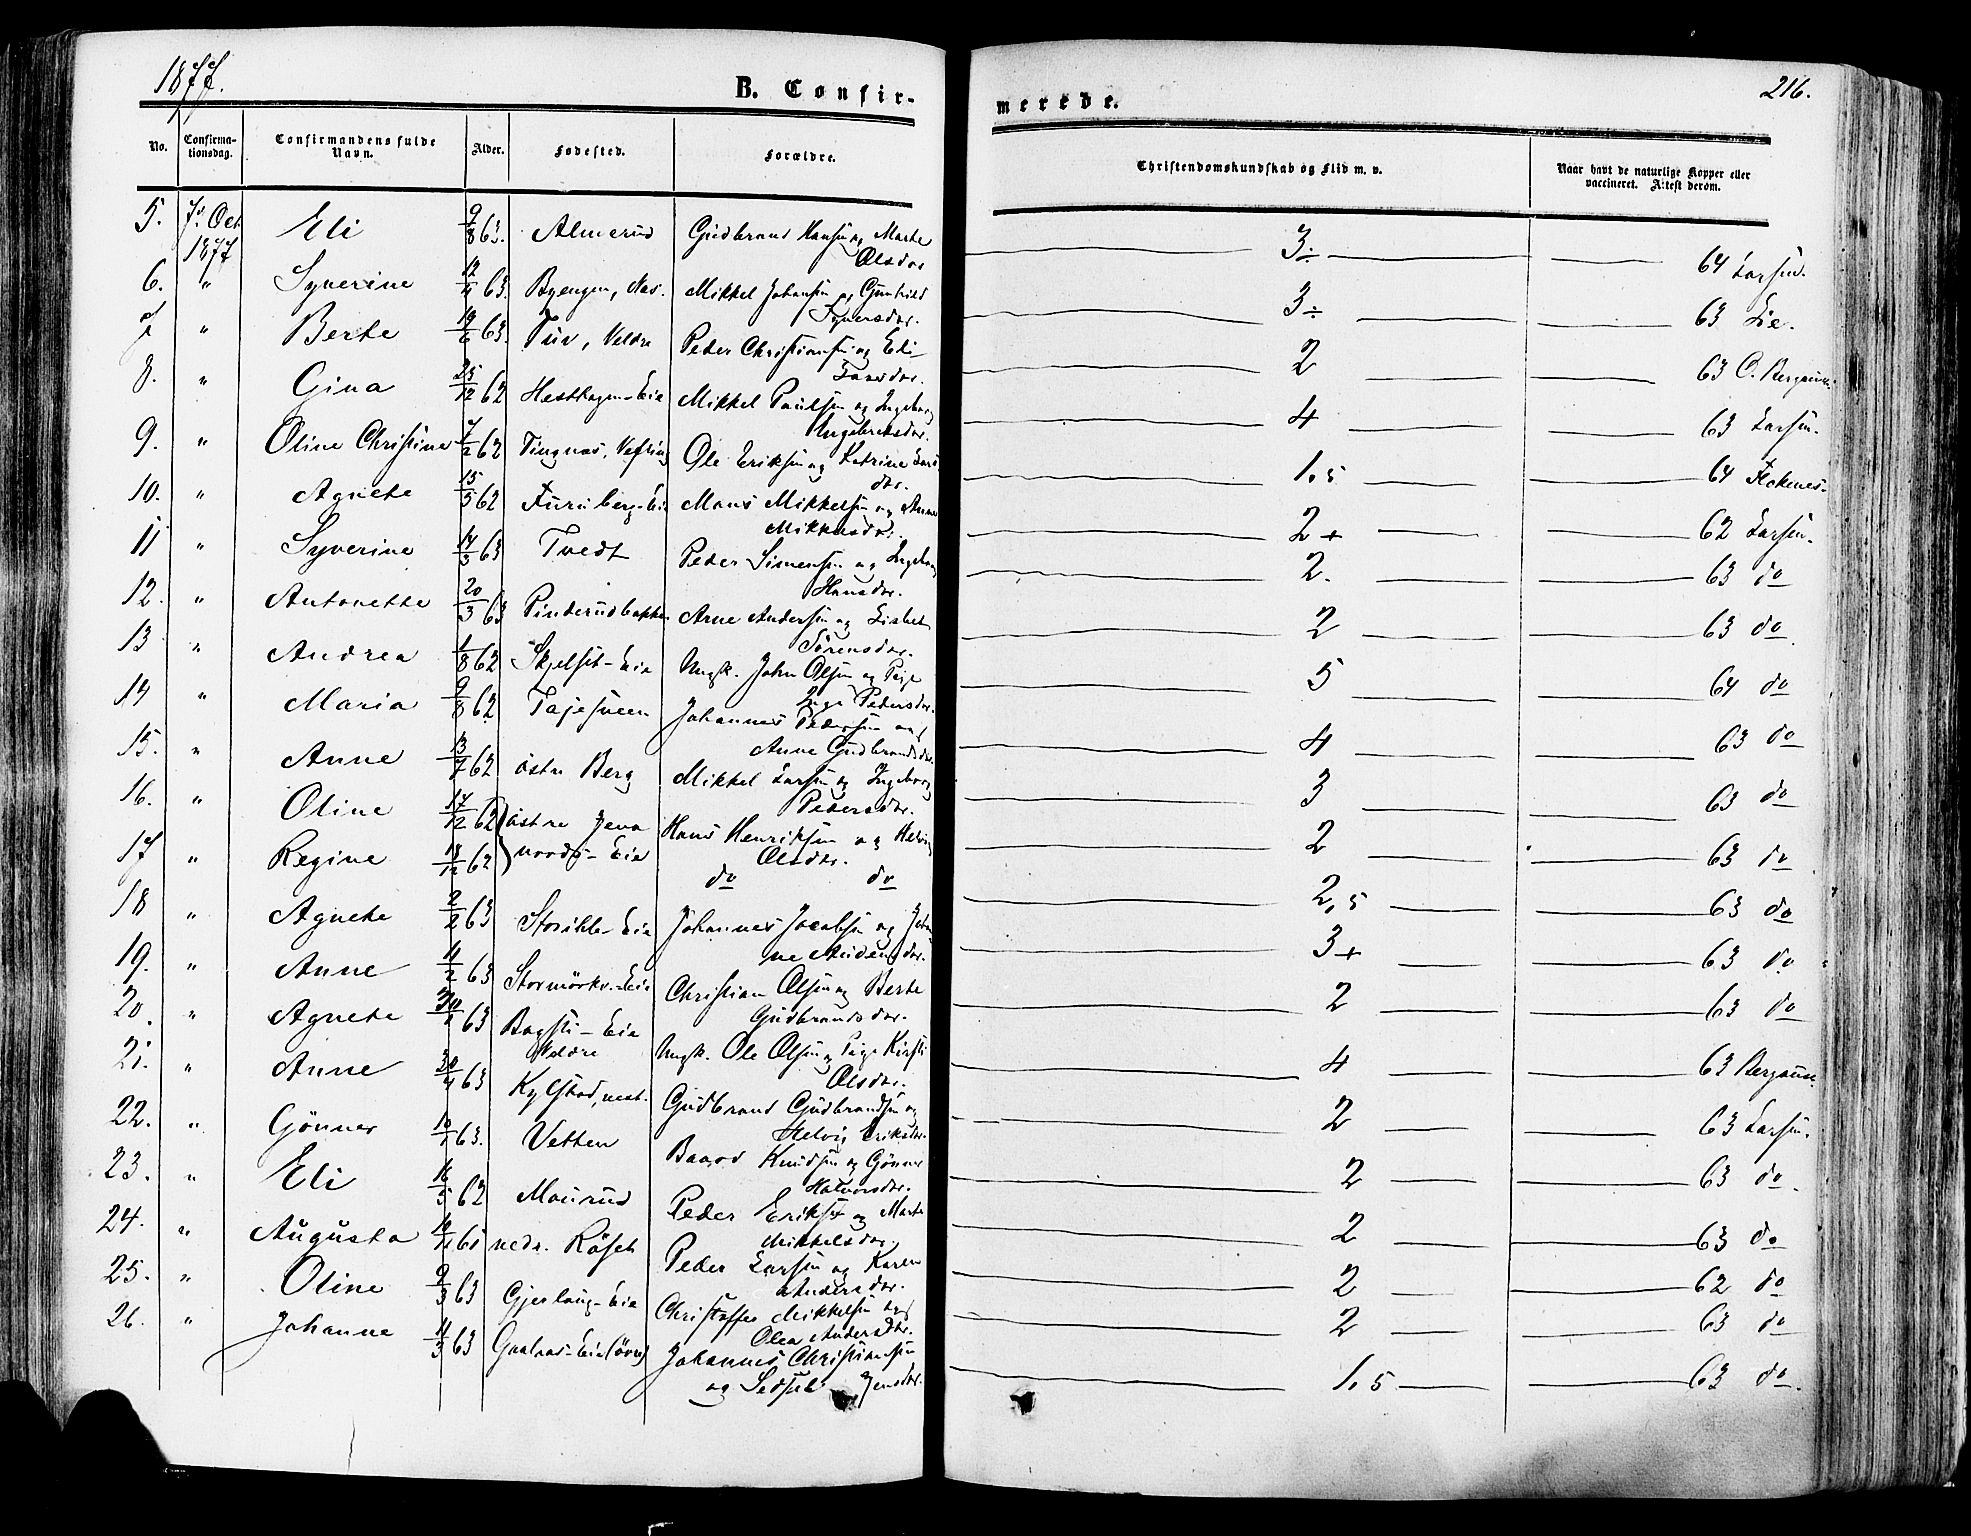 1877.
216.
B. Confir-
merede.
No.
Confirma-
tionsdag.
Confirmandens fulde
Navn.
Alder.
Fødested.
Forældre.
Christendomskundskab og Flid m. v.
Naar havt de naturlige Kopper eller
vaccineret. Attest derom.
5. 7. Oct. 1877 Eli 9/8 63. Almerud Gudbrand Hansen og Marte Olsdar 3÷ 64 Larsen.
6. " Syverine 63. Byengen, Nes. Mikkel Johansen og Gunhild Syversdar. 3÷ 63 Lie.
7 " Berte 19/6 63. Tuv, Veldre Peder Christiansen og Eli Larsdar. 2 63 C. Bergsun
8. " Gina 25/12 62 Hesthagen-Eie Mikkel Paulsen og Ingeborg Engebretsdar. 4 63 Larsen.
9. " Oline Christine 7/2 62 Tingnæs, Ole Eriksen og Katrine Lars dar. 1,5 64
10. " Agnete 15/5 62 Furuberg-Eie Mons Mikkelsen og Anne Mikkelsdar. 2+ 62 Larsen.
11 " Syverine 14/3 63 Tvedt Peder Simensen og Ingeborg Hansdar. 2. 63 do
12. " Antonette 20/3 63 Pinderudbakken Arne Andersen og Lisbet Sörensdar. 2 63 do
13 " Andrea 1/8 62 Skjelset-Eie Ungk. John Olsen og Pige Inge Pedersdar. 5 64 do
14 " Maria 9/8 62 Tajesveen Johannes Pedersen og Anne Gudbrandsdar. 4 63 do
15. " Anne 13/7 62 östre Berg Mikkel Larsen og Ingeborg Pedersdar. 3 63 do
16. " Oline 17/12 62 östre Jeva Hans Henriksen og Helvig Olsdar. 2 63 do
17 " Regine 18/12 62 nordre-Eie do do 2,5 63 do
18 " Agnete 2/2 63 Eie Johannes Jacobsen og Johan ne Andersdar. 3+ 63 do
19. " Anne 11/2 63 Stormörkv.-Eie Christian Olsen og Berte Gudbrandsdar. 2 63 do
20. " Agnete 63 Bagsti-Eie Veldre Ungk. Ole Olsen og Pige Kirsti Olsdar. 4 63 Bergsun
21. " Anne 30/4 63 Kylstad, nest. Gudbrand Gudbrandsen og Helvig Eriksdar. 2 63 Larsen.
22. " Gönner 10/1 63. Vetten Baard Knudsen og Gönner Halvorsdar. 2 63 do.
23. " Eli 16/5 62 Maurud Peder Eriksen og Marte Mikkelsdar. 2 63 do
24. " Augusta nedr. Röset Peder Larsen og Karen Andersdar. 2 62 do
25. " Oline 9/3 63 Gjerlaug-Eie Christoffer Mikkelsen og Olea Andersdtr. 2 63 do
26. " Johanne 11/3 63 Johannes Christiansen og Jensdar. 1,5 63 do.